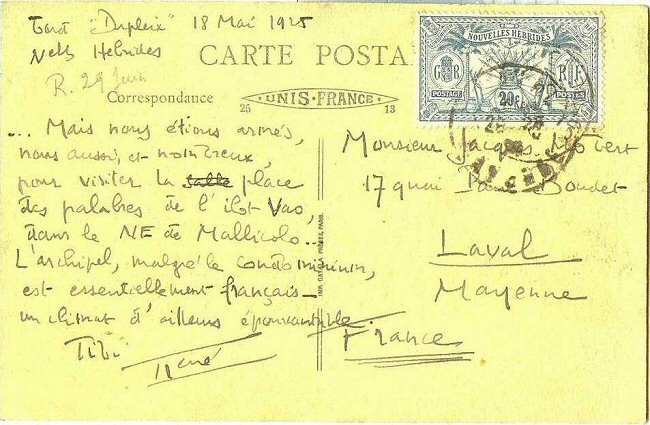 "Dupleix" 18 Mai 1925
Nelles Hebrides
R. 29 Juin
CARTE POSTA
Correspondance
UNIS-FRANCE
25 13
NOUVELLES HEBRIDES
G R
R F
POSTAGE
POSTES
20c
... Mais nous étions armés,
nous aussi, et nombreux,
pour visiter la salle place
des palabres de l'ilot Vao,
dans le NE de Mallicolo...
L'archipel, malgré le condominium,
est essentiellement français_
un climat d'ailleurs épouvantable.
René
Monsieur Jacques
17 quai Boudet
Laval
Mayenne
France